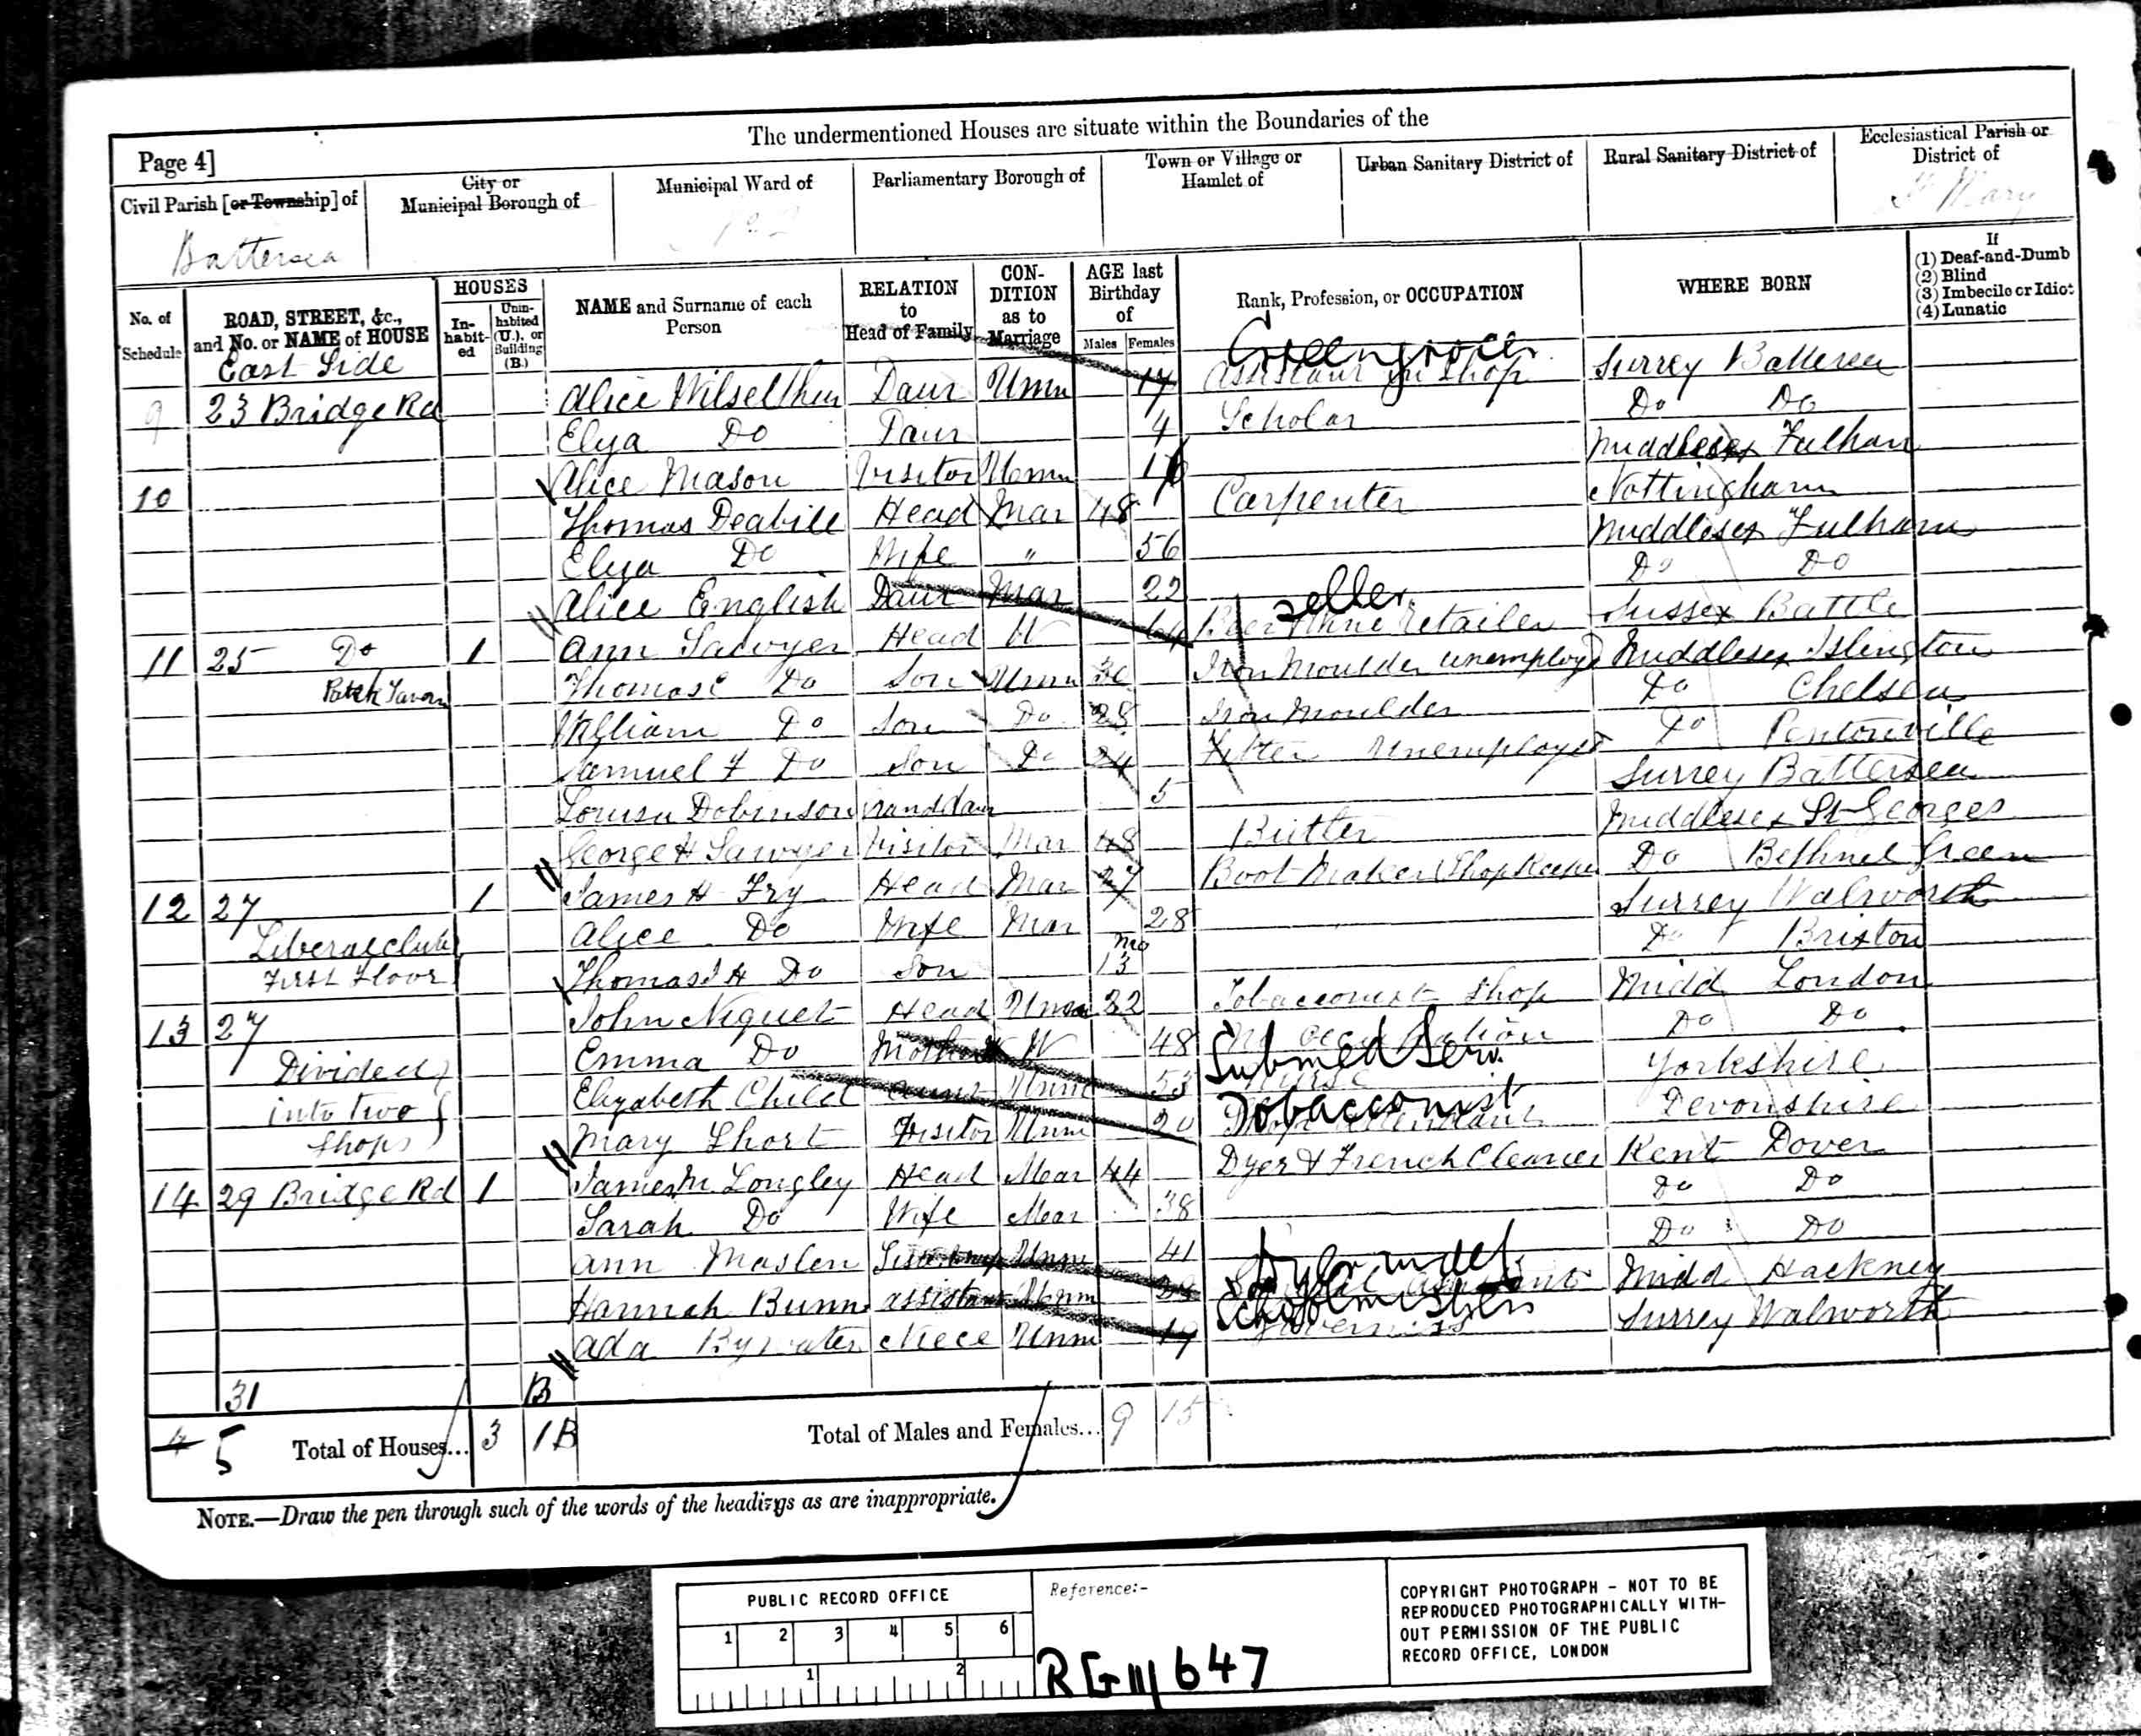 The undermentioned Houses are situate within the Boundaries of the
Page 4]
Civil Parish [or Township] of
City or Municipal Borough of
Municipal Ward of
Parliamentary Borough of
Town or Village or Hamlet of
Urban Sanitary District of
Rural Sanitary District of
Ecclesiastical Parish or District of
Battersea
St Mary
No. of Schedule
ROAD, STREET, &c., and No. or NAME of HOUSE
HOUSES
In-habit-ed
Unin-habited (U.), or Building (B.)
NAME and Surname of each Person
RELATION to Head of Family
CON-DITION as to Marriage
AGE last Birthday of
Males Females
Rank, Profession, or OCCUPATION
WHERE BORN
If
(1) Deaf-and-Dumb
(2) Blind
(3) Imbecile or Idiot
(4) Lunatic
East Side
Greengrocer
9 23 Bridge Rd Alice Daur Unm 17 Assistant in Shop Surrey Battersea
Elza Do Daur 4 Scholar Do Do
Alice Mason Visitor Unm 16 Middlesex Fulham
10 Thomas Deabill Head Mar 48 Carpenter Nottingham
Elza Do Wife " 56 Middlesex Fulham
Alice English Daur Mar 22 Do Do
seller
11 25 Do 1 Ann Sawyer Head W 64 Beer & Wine retailer Sussex Battle
Tavern Do Son Unm 30 Iron Moulder unemployd Middlesex Islington
William Do Son Do 28 Iron Moulder Do Chelsea
Samuel F Do Son Do 24 Fitter Unemployed Do Pentonville
Louisa Dobinson Granddaur 5 Surrey Battersea
George H Sawyer Visitor Mar 48 Butler Middlesex St Georges
12 27 1 James H Fry Head Mar 27 Boot Maker Shop Keeper Do Bethnel Green
Liberal club Alice Do Wife Mar 28 Surrey Walworth
First Floor Do Son 13 mo Do Brixton
13 27 John Niquet Head Unm 22 Tobacconist Shop Midd London
Emma Do Mother W 48 No occupation Do Do
Divided Elizabeth Child Aunt Unm 53 Nurse Yorkshire
Submed Serv.
into two Mary Short Visitor Unm 20 Devonshire
Tobacconist
Shops
14 29 Bridge Rd 1 James M Longley Head Mar 44 Dyer & French Cleaner Kent Dover
Sarah Do Wife Mar 38 Do Do
Ann Maslen Unm 41 Do Do
Hannah Bunn assistant Unm Midd Hackney
Ada Bywater Niece Unm 19 Governess Surrey Walworth
Schoolmistress
31 B
4 5 Total of Houses... 3 1B Total of Males and Females... 9 15
NOTE.—Draw the pen through such of the words of the headings as are inappropriate.
PUBLIC RECORD OFFICE
1 2 3 4 5 6
1 2
Reference:-
RG 11/647
COPYRIGHT PHOTOGRAPH - NOT TO BE
REPRODUCED PHOTOGRAPHICALLY WITH-
OUT PERMISSION OF THE PUBLIC
RECORD OFFICE, LONDON